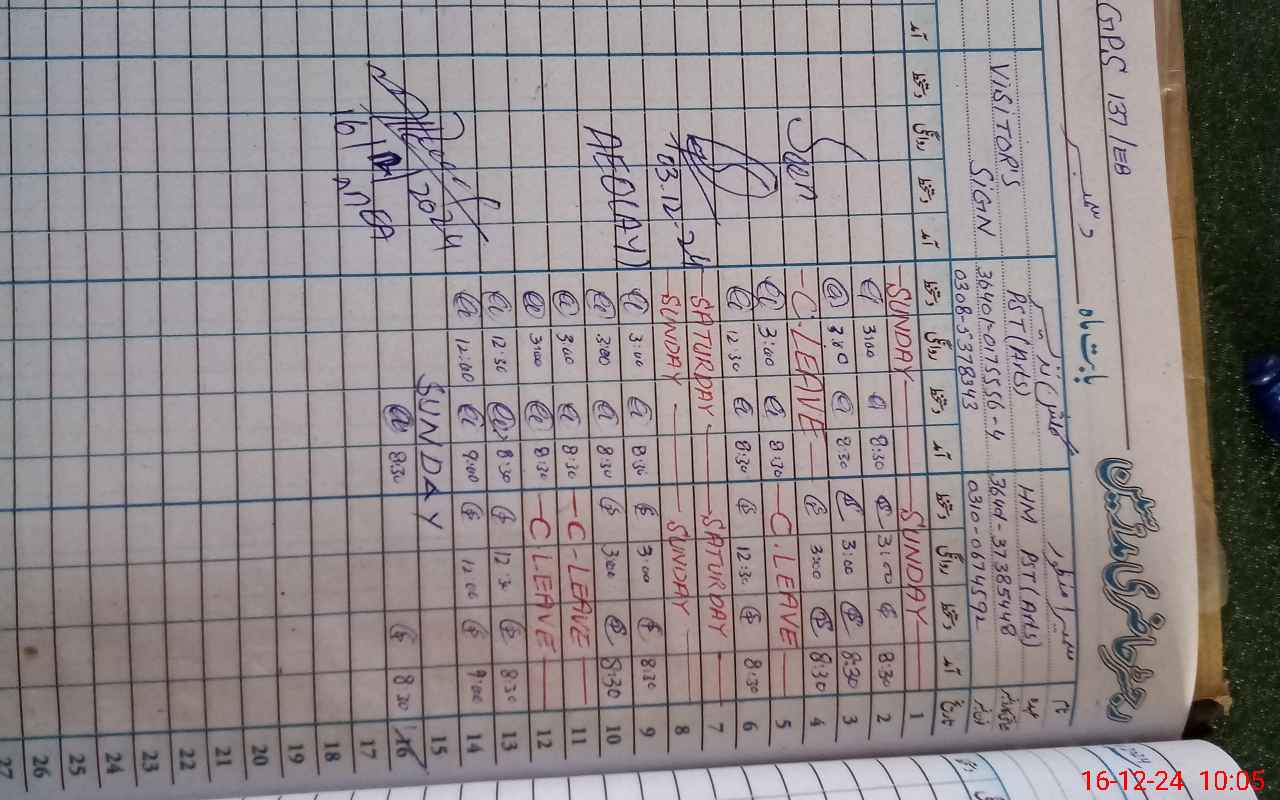 GPS 137/EB
رجسٹر حاضری مدرسین
بابت ماہ
دسمبر
نام
عہدہ
شناختی
فون
تاریخ
HM PST(Arts)
0310-0674592
PST(Arts)
36401-0175556-4
0308-5378343
VISITORS
SIGN
آمد دستخط روانگی دستخط آمد دستخط روانگی دستخط آمد دستخط روانگی دستخط آمد
1 SUNDAY SUNDAY
2 8:30 3:00 8:30 3:00
3 8:30 3:00 8:30 3:00
4 8:30 3:00 C.LEAVE
5 C.LEAVE 8:30 3:00
6 8:30 12:30 8:30 12:30
7 SATURDAY SATURDAY
8 SUNDAY SUNDAY
9 8:30 3:00 8:30 3:00
10 8:30 3:00 8:30 3:00
11 C-LEAVE 8:30 3:00
12 C LEAVE 8:30 3:00
13 8:30 12:30 8:30 12:30
14 9:00 12:00 9:00 12:00
15 SUNDAY
16 8:30 8:30
17
18
19
20
21
22
23
24
25
26
27
Seen
03.12.24
2024
16-12-24 10:05